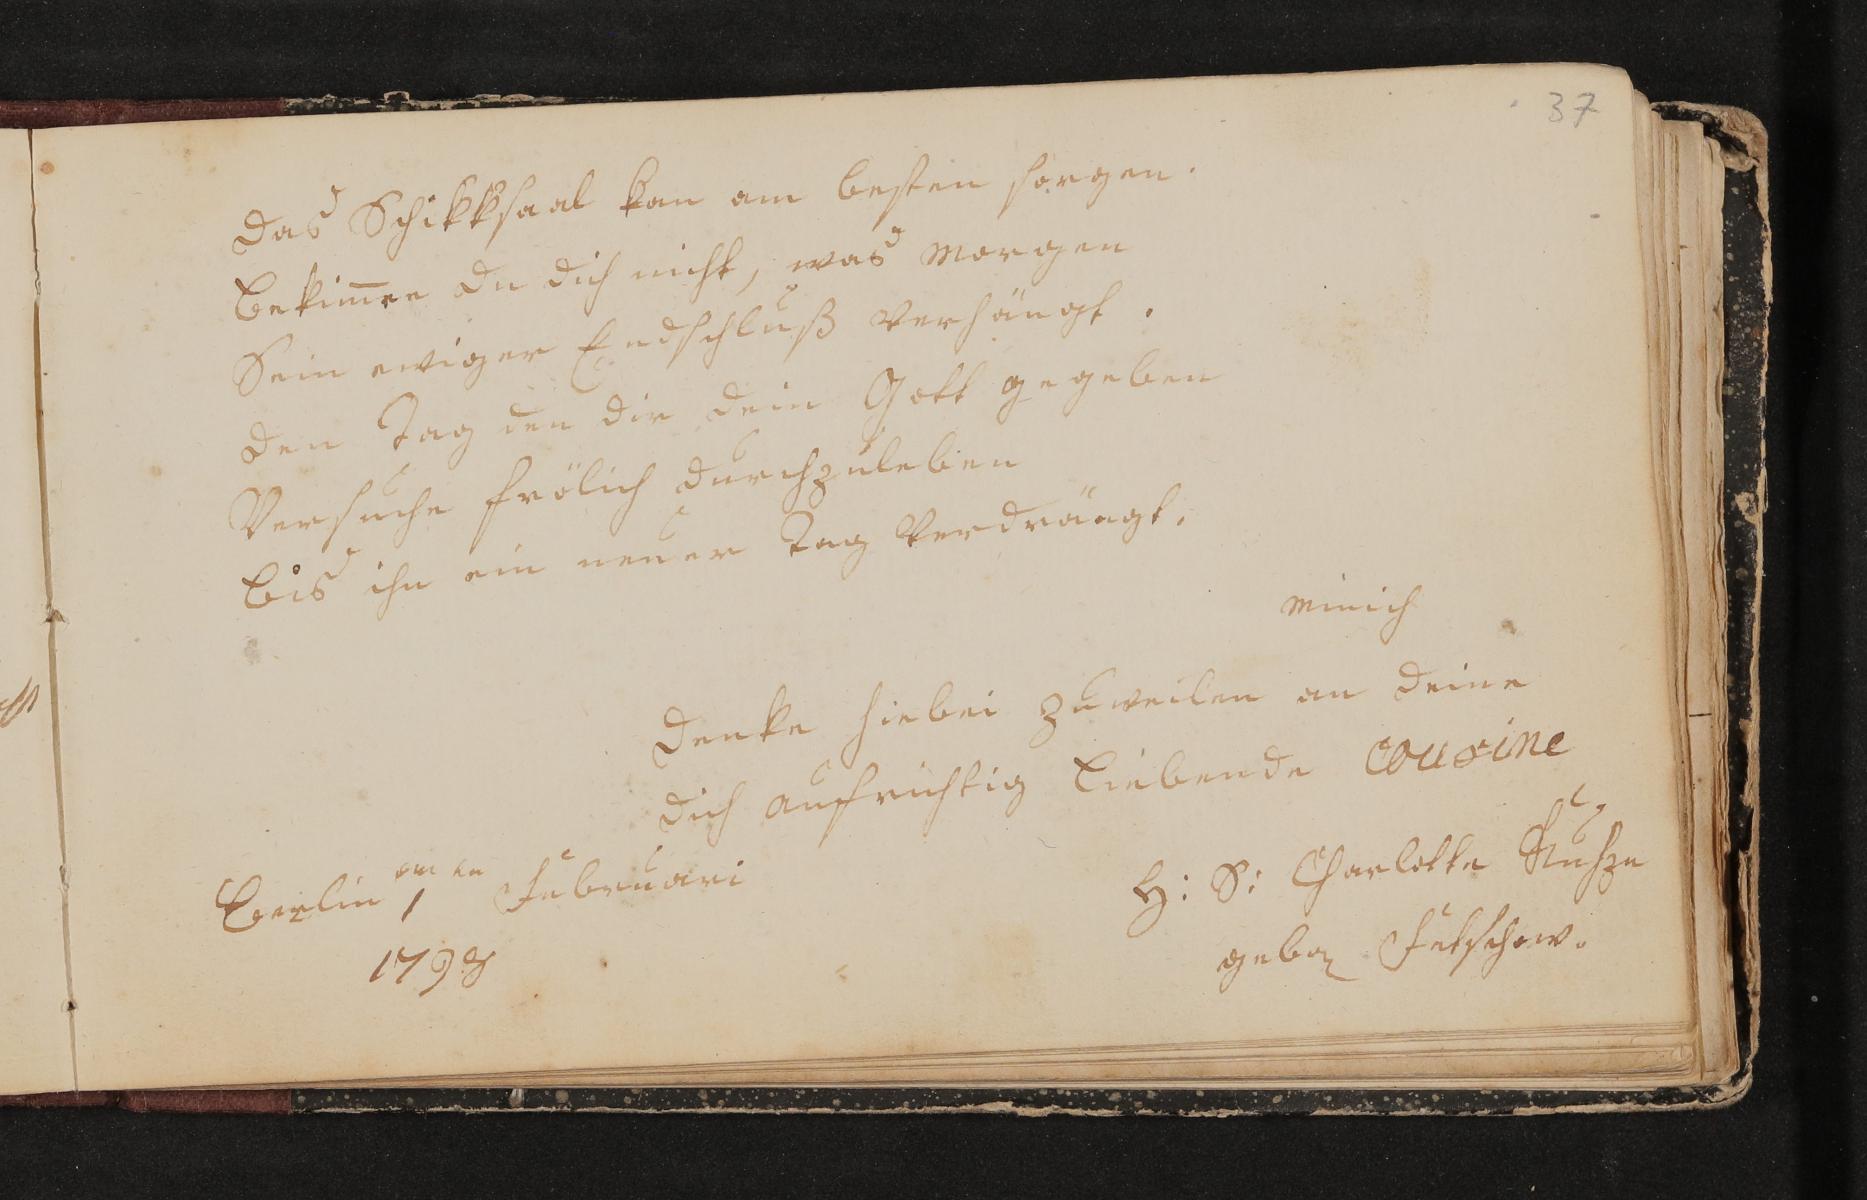 37
Das Schikksaal kan am besten sorgen.
Bekim̄re Du dich nicht, was morgen
Sein ewiger Endschluß verhängt.
Den Tag den dir dein Gott gegeben
Versuche frölich durchzuleben
Bis ihn ein neuer Tag verdrängt.
Denke hiebei zuweilen an deine
dich aufrichtig Liebende Cousine
Berlin am 1 Februari
H: S: Charlotte
1798